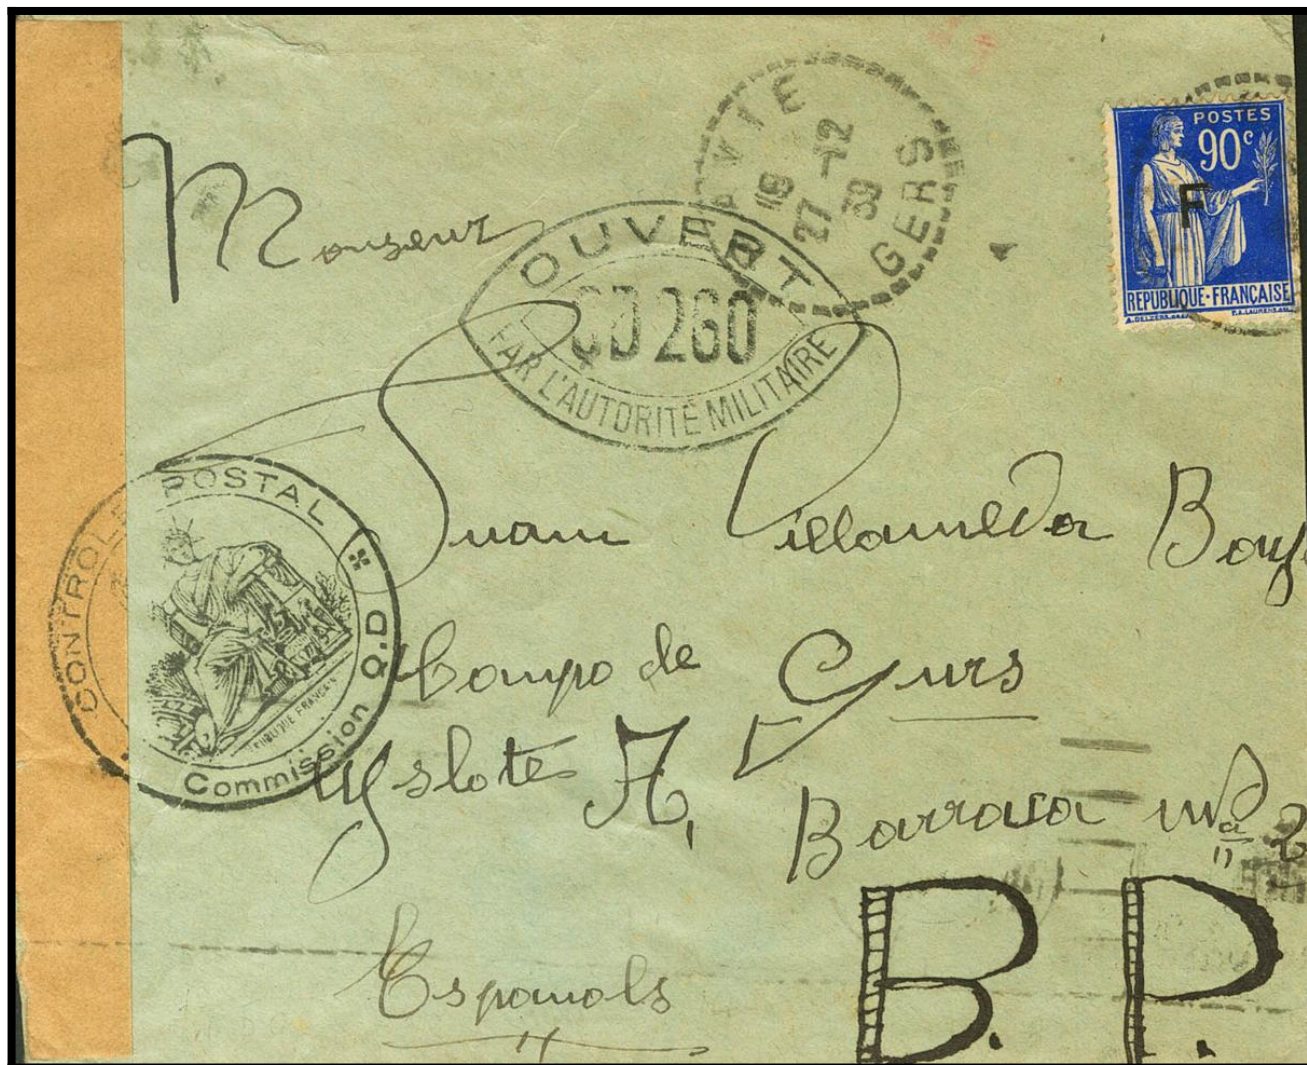 PAVIE
18
27-12
39
GERS
POSTES
90c
F
REPUBLIQUE-FRANÇAISE
Monseur
OUVERT
QJ 260
PAR L'AUTORITÉ MILITAIRE
CONTROLE POSTAL
Commission Q.D
Juan Villameda
Campo de Gurs
Yslote A,
Barraca
Espanols
B. P.